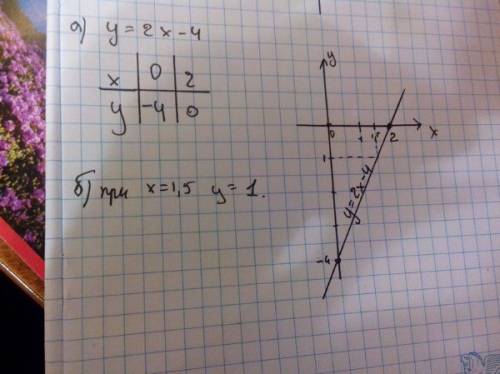 а) y = 2x - 4
x | 0 | 2
y | -4 | 0
б) при x = 1,5 y = 1.
y
0 1 1,5 2 x
1
y = 2x - 4
-4